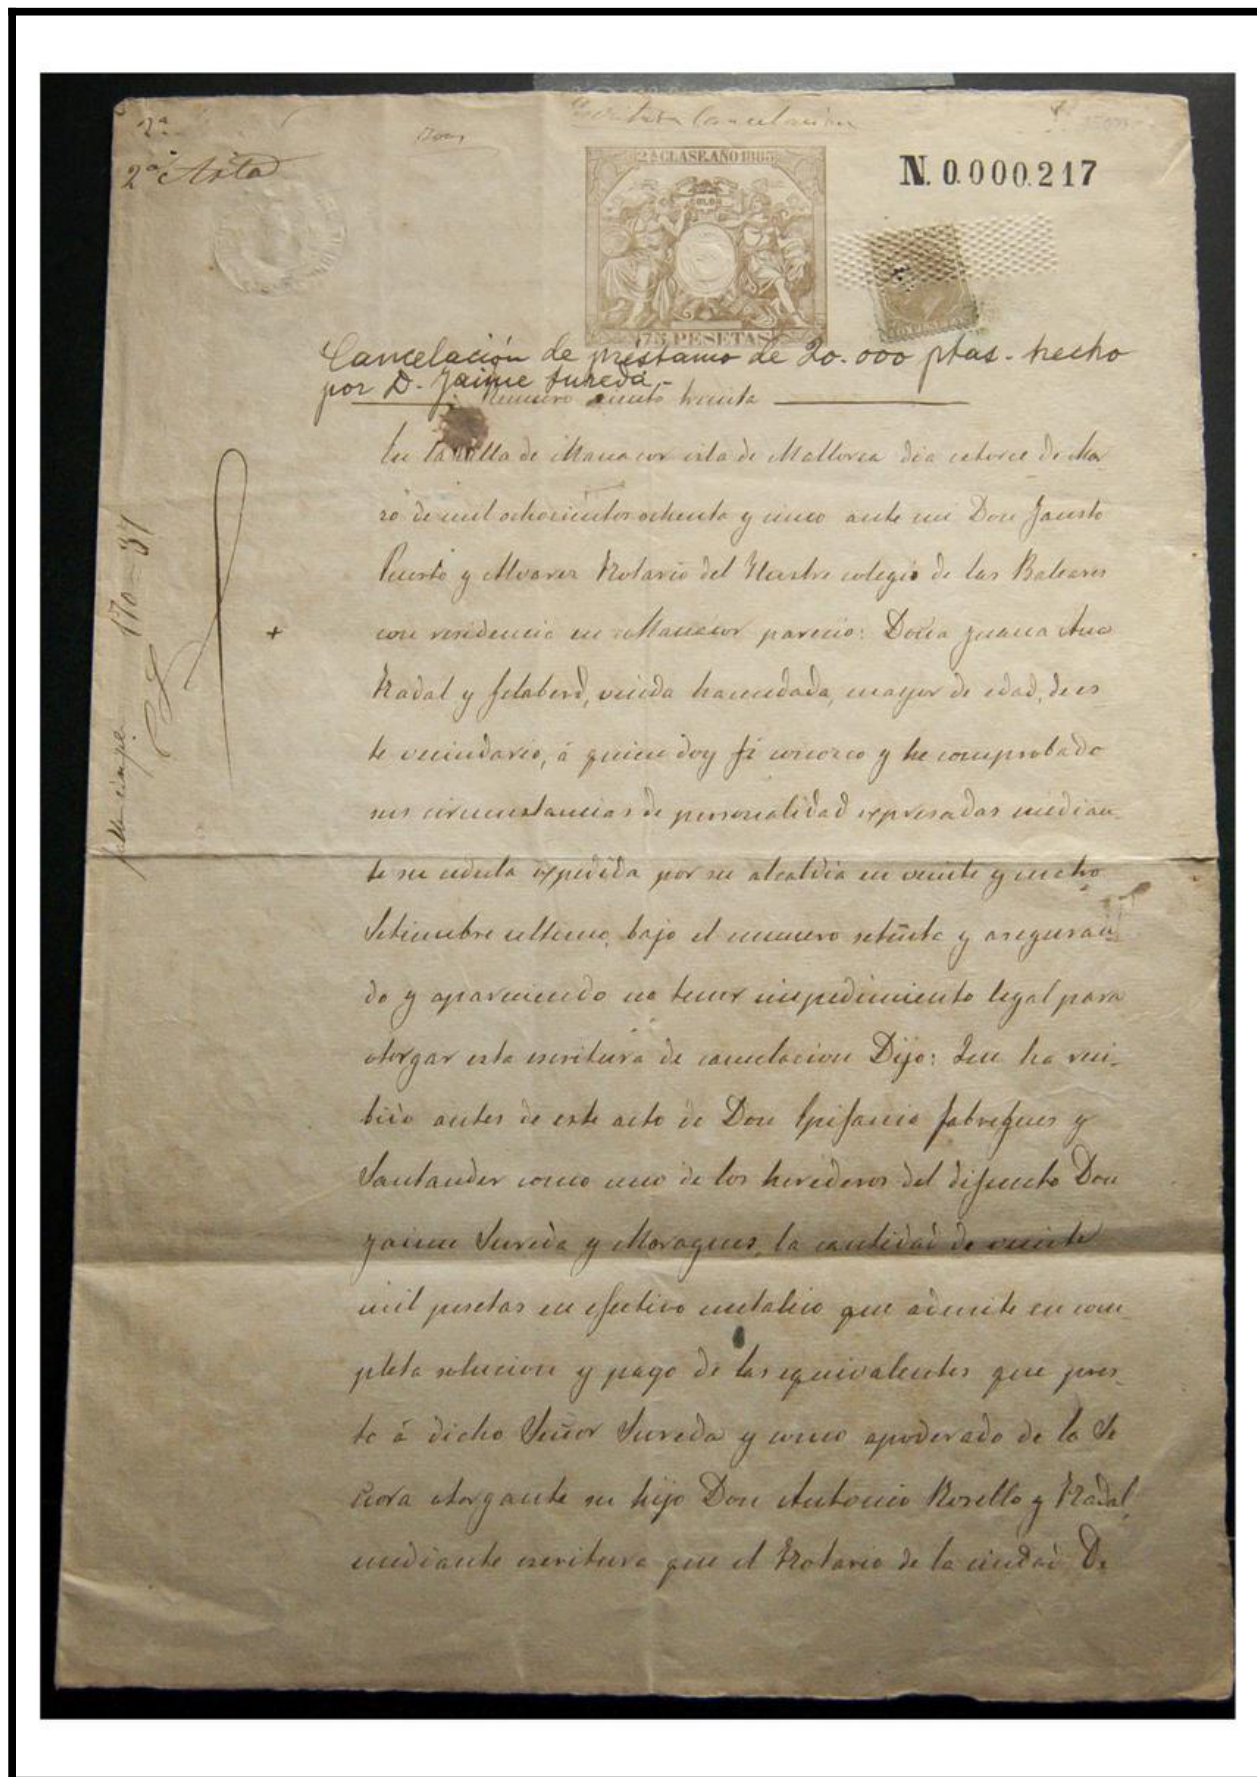 2ª
2ª Asta
Escritura Cancelacion
2ª CLASE. AÑO 1885
75 PESETAS
N. 0.000.217
Cancelación de préstamo de 20.000 ptas. hecho
por D. Jaime Sureda.-
Numero ciento treinta
En la Villa de Manacor isla de Mallorca dia catorce de Mar
zo de mil ochocientos ochenta y cinco ante mi Don Fausto
Puerto y Alvarez Notario del Ilustre colegio de las Baleares
con residencia en Manacor parecio: Doña Juana Ana
Nadal y Gelaberd, viuda hacendada, mayor de edad, de es
te vecindario, á quien doy fé conozco y he comprobado
sus circunstancias de personalidad expresadas median_
te su cedula expedida por su alcaldia en veinte y cuatro
Setiembre ultimo, bajo el numero setenta y aseguran_
do y apareciendo no tener impedimiento legal para
otorgar esta escritura de cancelacion Dijo: Que ha reci_
bido antes de este acto de Don Epifanio Fabregues y
Santander como uno de los herederos del difunto Don
Jaime Sureda y Moragues, la cantidad de veinte
mil pesetas en efectivo metalico que admite en com_
pleta solucion y pago de las equivalentes que pres_
to á dicho Señor Sureda y como apoderado de la Se
ñora otorgante su hijo Don Antonio Rosello y Nadal,
mediante escritura que el Notario de la ciudad De
170-31